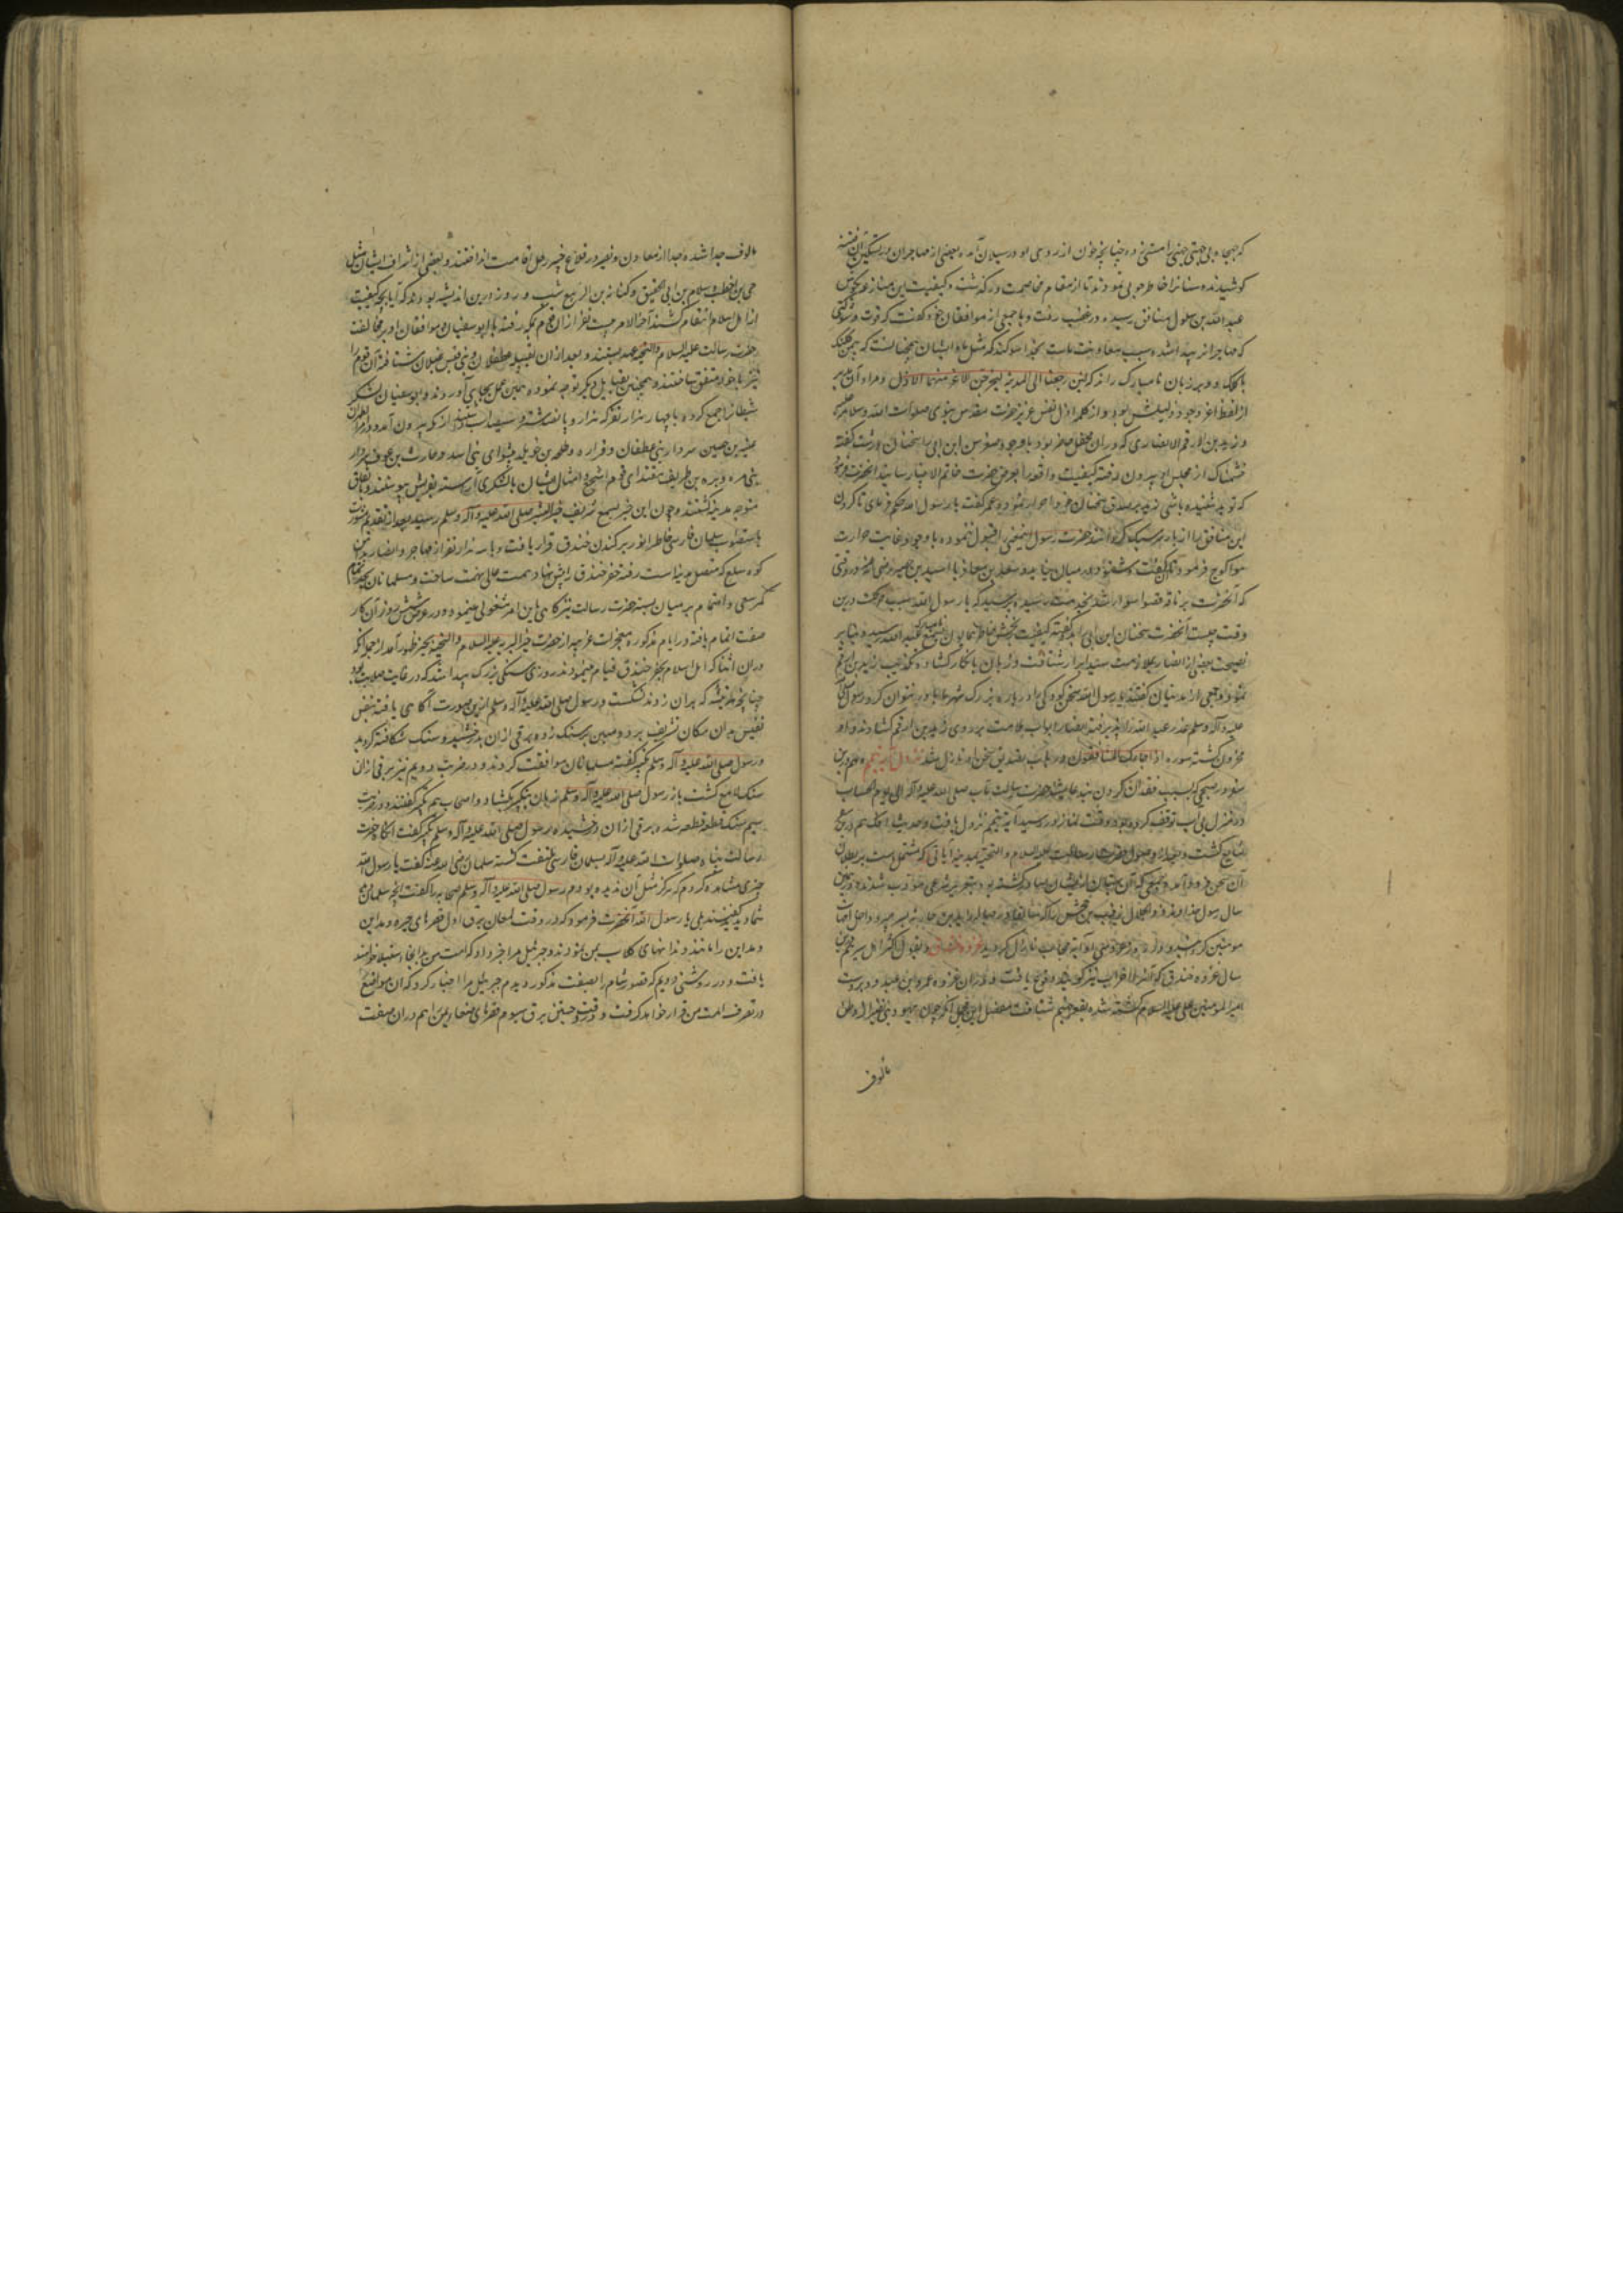 که جهجاه بی جهتی جهنی را مشتی زده چنانچه خون از روی او در سیلان آمد و بعضی از مهاجران در تسکین آن فتنه
کوشیدند و سنانرا خاطرجویی نمودند تا از مقام مخاصمت درگذشت و کیفیت این منازعه بگوش
عبد الله بن سلول منافق رسیده در غضب رفت و با جمعی از موافقان خود گفت که قوت و شوکتی
که مهاجرانرا پیدا شده بسبب معاونت ماست بخدا سوگند که مثل ما و ایشان همچنانست که سمن کلبک
یاکلک و بر زبان نامبارک راند که لئن رجعنا الی المدینة لیخرجن الاعز منها الاذل و مراد آن مدبر
از لفظ اعز وجود ذلیلش بود و از کلمه اذل نفس عزیز حضرت مقدس نبوی صلوات الله و سلامه علیه
و زید بن ارقم الانصاری که در آن محفل حاضر بود با وجود صغر سن ابن ابی را سخنان درشت گفته
خشمناک از مجلس او بیرون رفته کیفیت واقعه را بعرض حضرت خاتم الانبیا رسانید آنحضرت فرمود
که تو بد شنیده باشی زید بر صدق سخنان خود اصرار نمود و عمر گفت یا رسول الله حکم فرمای تا گردن
این منافق را از بار سر سبک گردانند حضرت رسول این معنی را قبول ننموده با وجود غایت حرارت
هوا کوچ فرمود تا گفت و شنودی در میان نیاید و سعد بن معاذ یا اسید بن حضیر رضی الله عنه در وقتی
که آنحضرت بر ناقه قصوا سوار شد بخدمت رسیده پرسید که یا رسول الله سبب حرکت درین
وقت چیست آنحضرت سخنان ابن ابی را بدو گفته کیفیت رنجش خاطر همایون بسمع عبد الله رسید و بنابر
نصیحت بعضی از انصار بملازمت سید ابرار شتافت و زبان بانکار گشاده تکذیب زید بن ارقم
نمود و جمعی از مدنیان گفتند یا رسول الله سخن کودکی را درباره بزرگ شهر ما باور نتوان کرد رسول صلی الله
علیه و آله و سلم عذر عبد الله را پذیرفته انصار ابواب ملامت بر روی زید بن ارقم گشادند و او
محزون گشته سوره اذا جاءک المنافقون در باب تصدیق سخن او نازل شد نزول آیه تیمم و هم درین
سفر در صبحی که بسبب فقدان گردن بند عایشه حضرت رسالت مآب صلی الله علیه و آله الی یوم الحساب
در منزل بی آب توقف کرده بود و وقت نماز در رسید آیة تیمم نزول یافت و حدیث افک هم درین سفر
شایع گشت و بعد از وصول حضرت رسالت علیه السلام و التحیة بمدینه آیاتی که مشتملست بر بطلان
آن سخن فرود آمد و جمعی که آن بهتان از ایشان صادر گشته بود بتعزیر شرعی مؤدب شدند و درین
سال رسول خداوند ذو الجلال زینب بنت جحش را که سابقا در حباله زید بن حارثه بسر میبرد داخل امهات
مومنین گردانید و در روز عروسی او آیة حجاب نازل گردید غزوه خندق و بقول اکثر اهل سیر هم درین
سال غزوه خندق که آنرا احزاب نیز گویند وقوع یافت و در آن غزوه عمرو ابن عبد ود بر دست
امیر المومنین علی علیه السلام کشته شده بقعر جهنم شتافت مفصل این مجمل آنکه چون یهود بنی نضیر از وطن
مألوف
مألوف جدا شده و جدا از معاون و نصیر در قلاع خیبر رحل اقامت انداختند و بعضی از اشراف ایشان مثل
حی بن اخطب و سلام بن ابی الحقیق و کنانه بن الربیع شب و روز درین اندیشه بودند که آیا بچه کیفیت
از اهل اسلام انتقام کشند آخر الامر بیست نفر از ان قوم بمکه رفته با ابوسفیان و موافقان او بر مخالفت
حضرت رسالت علیه السلام و التحیه عهد بستند و بعد از ان بقبیله غطفان و بنی قیس عیلان شتافته آن قوم را
نیز با خود متفق ساختند و همچنین بقبایل دیگر توجه نموده همین عمل بجای آوردند و ابوسفیان لشکر
شیطانرا جمع کرده با چهار هزار نفر که هزار و پانصد شتر و سیصد اسب داشتند از مکه بیرون آمد و در مر الظهران
عیینه بن حصین سردار بنی غطفان و فزاره و طلحه بن خویلد پیشوای بنی اسد و حارث بن عوف سردار
بنی مره و وبره بن طریف مقتدای قوم اشجع و امثال ایشان با لشکری آراسته بقریش پیوستند و باتفاق
متوجه مدینه گشتند و چون این خبر بسمع شریف خیر البشر صلی الله علیه و آله و سلم رسید بعد از تقدیم مشورت
باستصواب سلمان فارسی خاطر انور بر کندن خندق قرار یافت و با سه هزار نفر از مهاجر و انصار بدامن
کوه سلع که متصل مدینه است رفته حفر خندق را پیش نهاد همت عالی نهمت ساخت و مسلمانان بجد تمام
کمر سعی و اهتمام بر میان بسته حضرت رسالت نیز گاهی باین امر مشغولی مینمود و در عرض شش روز آن کار
صفت اتمام یافته و در ایام مذکوره معجزات غریبه از حضرت خیر البریه علیه السلام و التحیة بحیز ظهور آمد از جمله آنکه
در ان اثنا که اهل اسلام بحفر خندق قیام مینمودند روزی سنگی بزرگ پیدا شد که در غایت صلابت بود
چنانچه هر تیشه که بران زدند شکست و رسول صلی الله علیه و آله و سلم ازین صورت آگاهی یافته بنفس
نفیس بدان مکان تشریف برد و میتین بر سنگ زده برقی ازان بدرخشید و سنگ شکافته گردید
و رسول صلی الله علیه و آله و سلم تکبیر گفته مسلمانان موافقت کردند و در ضربت دویم نیز برقی ازان
سنگ لامع گشت باز رسول صلی الله علیه و آله و سلم زبان بتکبیر بگشاد و اصحاب هم تکبیر گفتند و در ضربت
سیم سنگ قطعه قطعه شد و برقی ازان درخشیده رسول صلی الله علیه و آله و سلم تکبیر گفت آنگاه حضرت
رسالت پناه صلوات الله علیه و آله بسلمان فارسی ملتفت گشته سلمان رضی الله عنه گفت یا رسول الله
چیزی مشاهده کردم که هرگز مثل آن ندیده بودم رسول صلی الله علیه و آله و سلم صحابه را گفت آنچه سلمان دید
شما دیدید گفتند بلی یا رسول الله آنحضرت فرمود که در وقت لمعان برق اول قصرهای حیره و مداین
و مداین را مانند دندانهای کلاب بمن نمودند و جبرئیل مرا خبر داد که امت من بر آنجا استیلا خواهند
یافت و در روشنی دویم که قصور شام را بصفت مذکور دیدم جبرئیل مرا اخبار کرد که آن مواضع
در تصرف امت من قرار خواهد گرفت و در وقت جستن برق سیوم قصرهای صنعاء یمن را هم در ان صفت